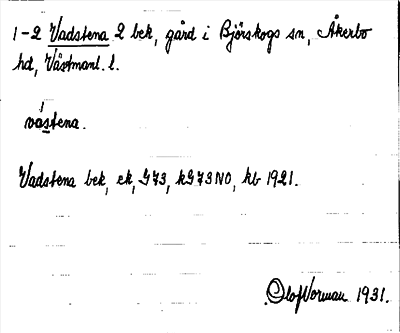 1-2 Vadstena 2 bek, gård i Björskogs sn, Åkerbo
hd, Västmanl. l.
vástena.
Vadstena bek, ek, G73, kG73NO, kb 1921.
Olof Norman 1931.